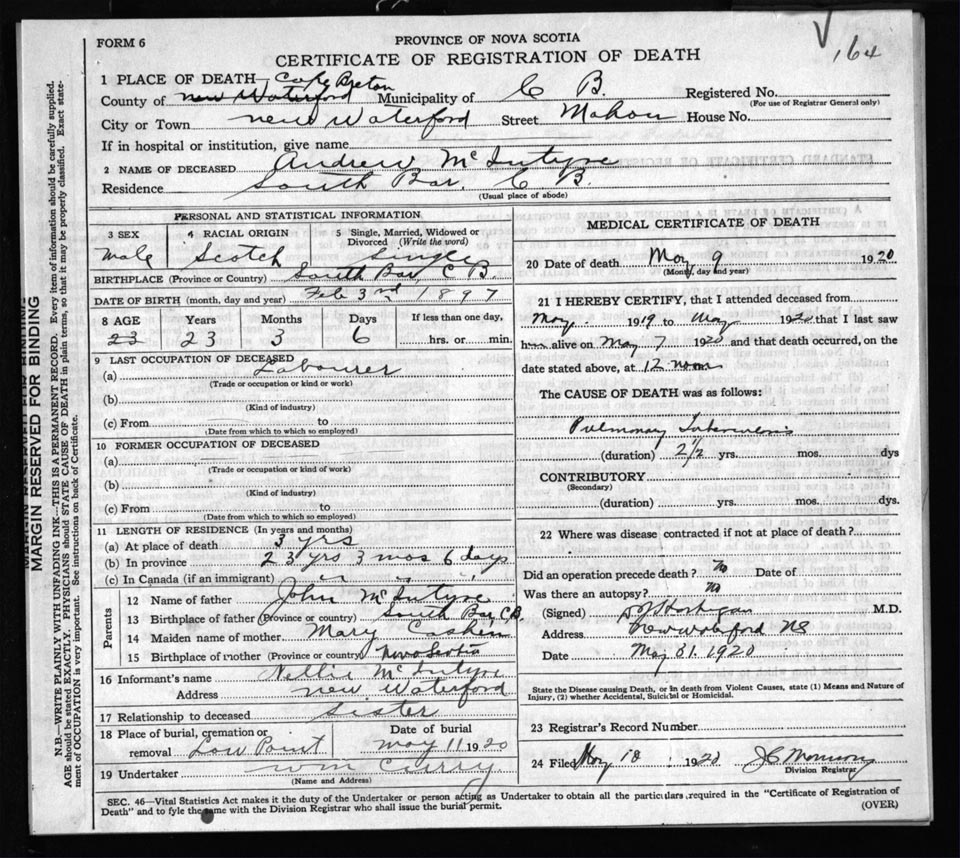 FORM 6
PROVINCE OF NOVA SCOTIA
164
CERTIFICATE OF REGISTRATION OF DEATH
1 PLACE OF DEATH Cape Breton
County of New Waterford Municipality of C B. Registered No.
(For use of Registrar General only)
City or Town New Waterford Street Mahon House No.
If in hospital or institution, give name
2 NAME OF DECEASED Andrew McIntyre
Residence South Bar, C B.
(Usual place of abode)
PERSONAL AND STATISTICAL INFORMATION
3 SEX 4 RACIAL ORIGIN 5 Single, Married, Widowed or Divorced (Write the word)
Male Scotch Single
BIRTHPLACE (Province or Country) South Bar, C B.
DATE OF BIRTH (month, day and year) Feb 3rd 1897
8 AGE Years Months Days If less than one day,
23 23 3 6 hrs. or min.
9 LAST OCCUPATION OF DECEASED
(a) Labourer
(Trade or occupation or kind of work)
(b)
(Kind of industry)
(c) From to
(Date from which to which so employed)
10 FORMER OCCUPATION OF DECEASED
(a)
(Trade or occupation or kind of work)
(b)
(Kind of industry)
(c) From to
(Date from which to which so employed)
11 LENGTH OF RESIDENCE (In years and months)
(a) At place of death 3 yrs
(b) In province 23 yrs 3 mos 6 days
(c) In Canada (if an immigrant) " " "
Parents
12 Name of father John McIntyre
13 Birthplace of father (Province or country) South Bar, C.B.
14 Maiden name of mother Mary Cashen
15 Birthplace of mother (Province or country) Nova Scotia
16 Informant's name Nellie McIntyre
Address New Waterford
17 Relationship to deceased Sister
18 Place of burial, cremation or removal Low Point
Date of burial May 11 1920
19 Undertaker Wm Curry
(Name and Address)
MEDICAL CERTIFICATE OF DEATH
20 Date of death May 9 1920
(Month, day and year)
21 I HEREBY CERTIFY, that I attended deceased from
May 1919 to May 1920 that I last saw
h alive on May 7 1920 and that death occurred, on the
date stated above, at 12 noon
The CAUSE OF DEATH was as follows:
Pulmonary Tuberculosis
(duration) 2 1/2 yrs. mos. dys
CONTRIBUTORY
(Secondary)
(duration) yrs. mos. dys.
22 Where was disease contracted if not at place of death?
Did an operation precede death? No Date of
Was there an autopsy? No
(Signed) M.D.
Address New Waterford NS
Date May 31. 1920
State the Disease causing Death, or in death from Violent Causes, state (1) Means and Nature of Injury, (2) whether Accidental, Suicidal or Homicidal.
23 Registrar's Record Number
24 Filed May 18 1920
Division Registrar
SEC. 46—Vital Statistics Act makes it the duty of the Undertaker or person acting as Undertaker to obtain all the particulars required in the "Certificate of Registration of
Death" and to fyle the same with the Division Registrar who shall issue the burial permit.
(OVER)
MARGIN RESERVED FOR BINDING
N.B.—WRITE PLAINLY WITH UNFADING INK—THIS IS A PERMANENT RECORD. Every item of information should be carefully supplied.
AGE should be stated EXACTLY. PHYSICIANS should STATE CAUSE OF DEATH in plain terms, so that it may be properly classified. Exact state-
ment of OCCUPATION is very important. See instructions on back of Certificate.